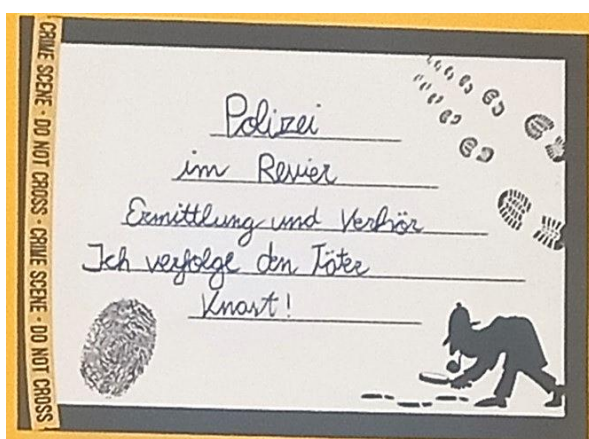 CRIME SCENE - DO NOT CROSS - CRIME SCENE - DO NOT CROSS
Polizei
im Revier
Ermittlung und Verhör
Ich verfolge den Täter
Knast!